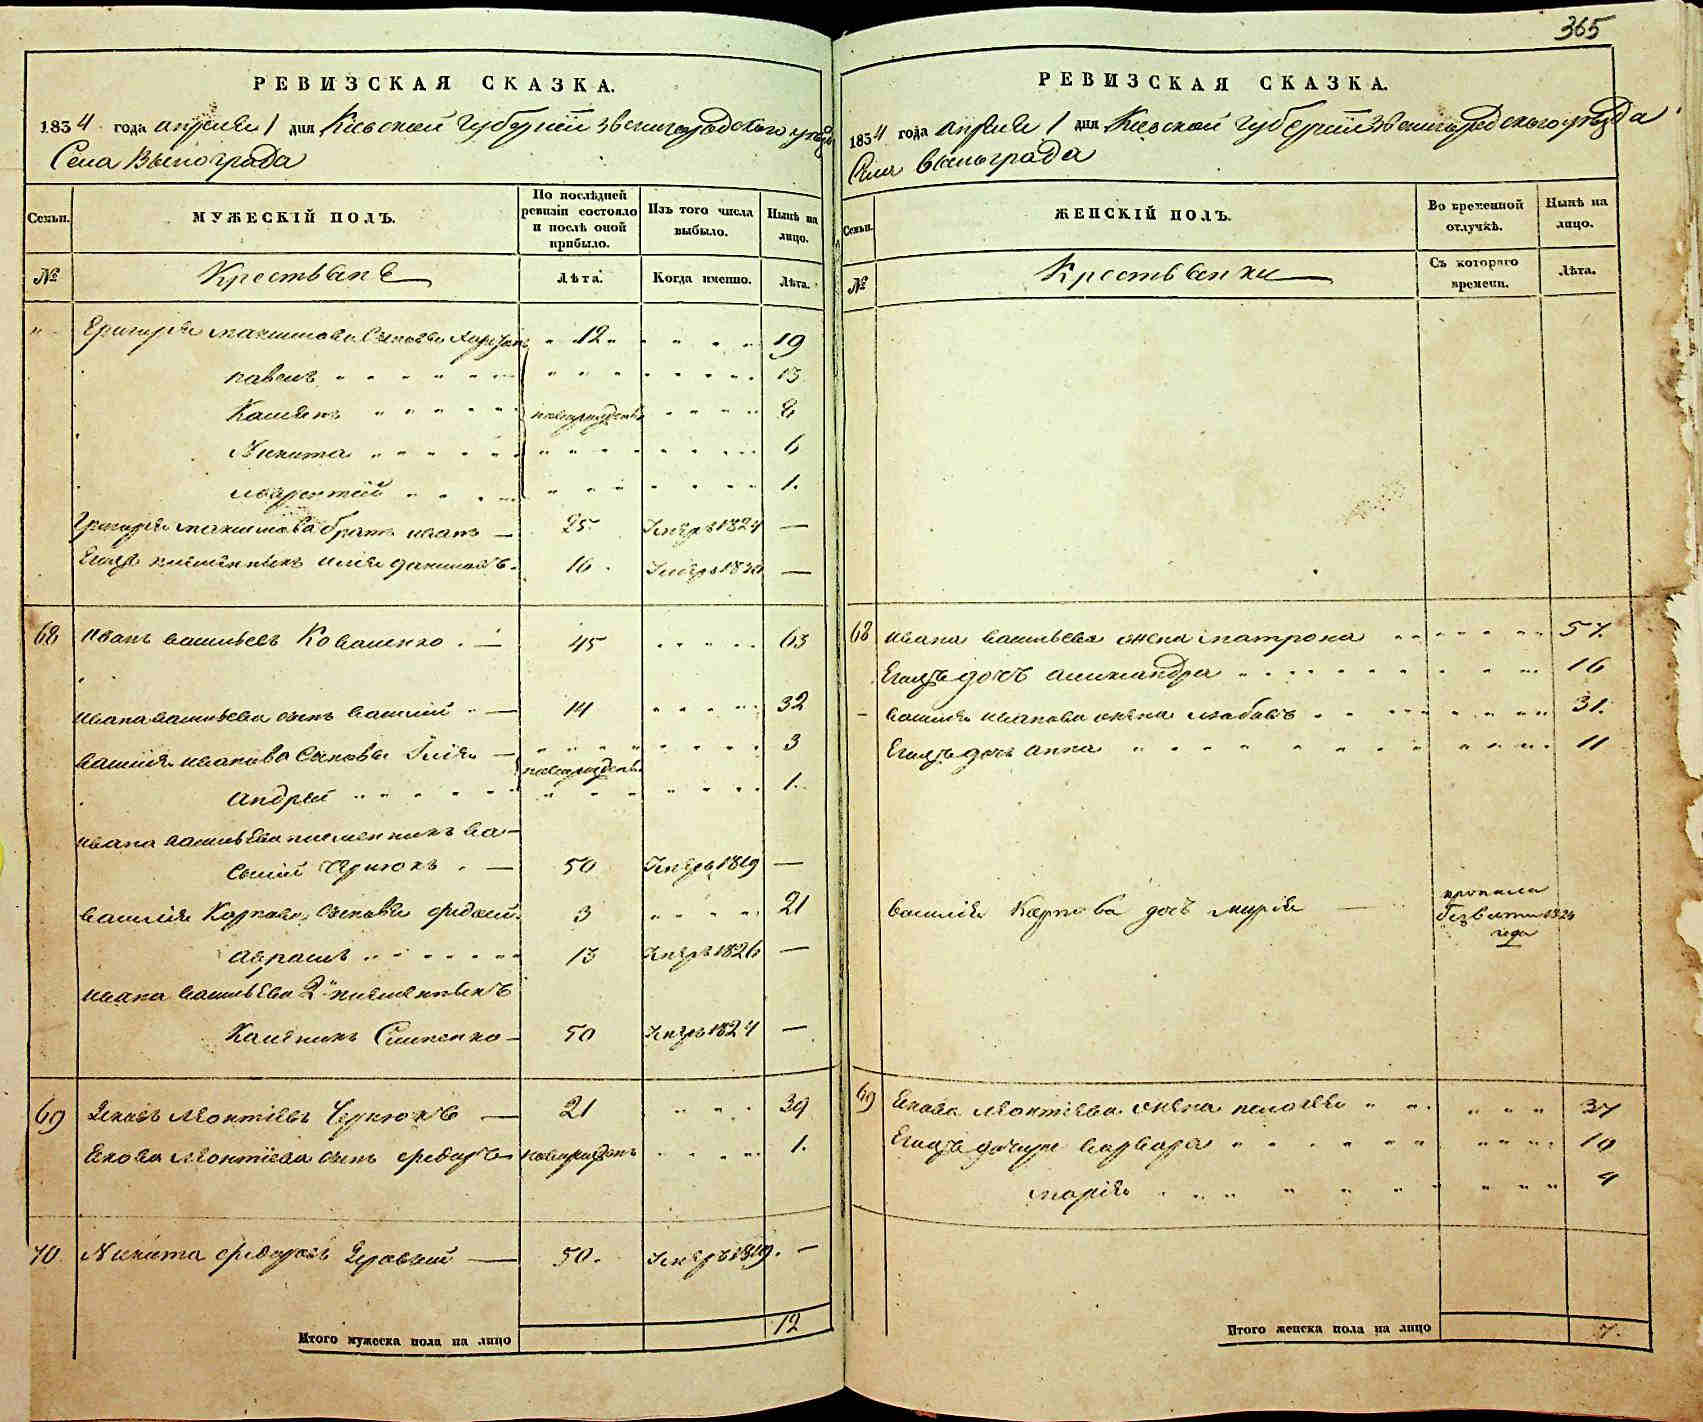 365
РЕВИЗСКАЯ СКАЗКА.
1834 года апреля 1 дня Киевской губернии Звенигородского уезда
Села Винограда
Семьи.
МУЖЕСКІЙ ПОЛЪ.
По послѣдней ревизіи состояло и послѣ оной прибыло.
Изъ того числа выбыло.
Нынѣ на лицо.
№
Крестьяне
Лѣта.
Когда именно.
Лѣта.
" Григорія Максимова Сыновья 12 19
Павелъ 13
новорожден
Никита 6
1.
Григорія Максимова братъ Иванъ — 25 1824 —
Егожъ племенникъ 16. —
68 Иванъ Васильевъ Коваленко — 45 63
Ивана Васильева сынъ Василій — 14 32
Василія Иванова Сыновья Илія — 3
новорожден
Андрей 1.
Ивана Васильева племенникъ Ва-
силій Чернюкъ — 50 1819 —
Василія Карпова Сыновья 3 21
Аврамъ 13 1826 —
Ивана Васильева 2й племенникъ
50 1824 —
69 Яковъ Леонтіевъ Чернюкъ — 21 39
Якова Леонтіева сынъ Федоръ новорожден 1.
70. Никита Федоровъ — 50. 1819. —
Итого мужеска пола на лицо 12
РЕВИЗСКАЯ СКАЗКА.
1834 года апреля 1 дня Киевской губернии Звенигородского уезда
Села Винограда
Семьи.
ЖЕНСКІЙ ПОЛЪ.
Во временной отлучкѣ.
Нынѣ на лицо.
№
Крестьянки
Съ котораго времени.
Лѣта.
68 Ивана Васильева жена Матрона 57.
Егожъ дочь Александра 16
Василія Иванова жена 31.
Егожъ дочь Анна 11
Василія Карпова дочь Марія — пропала
безвести 1824
года
69 Якова Леонтіева жена 37
Егожъ дочери Варвара 10
Марія 4
Итого женска пола на лицо 7.